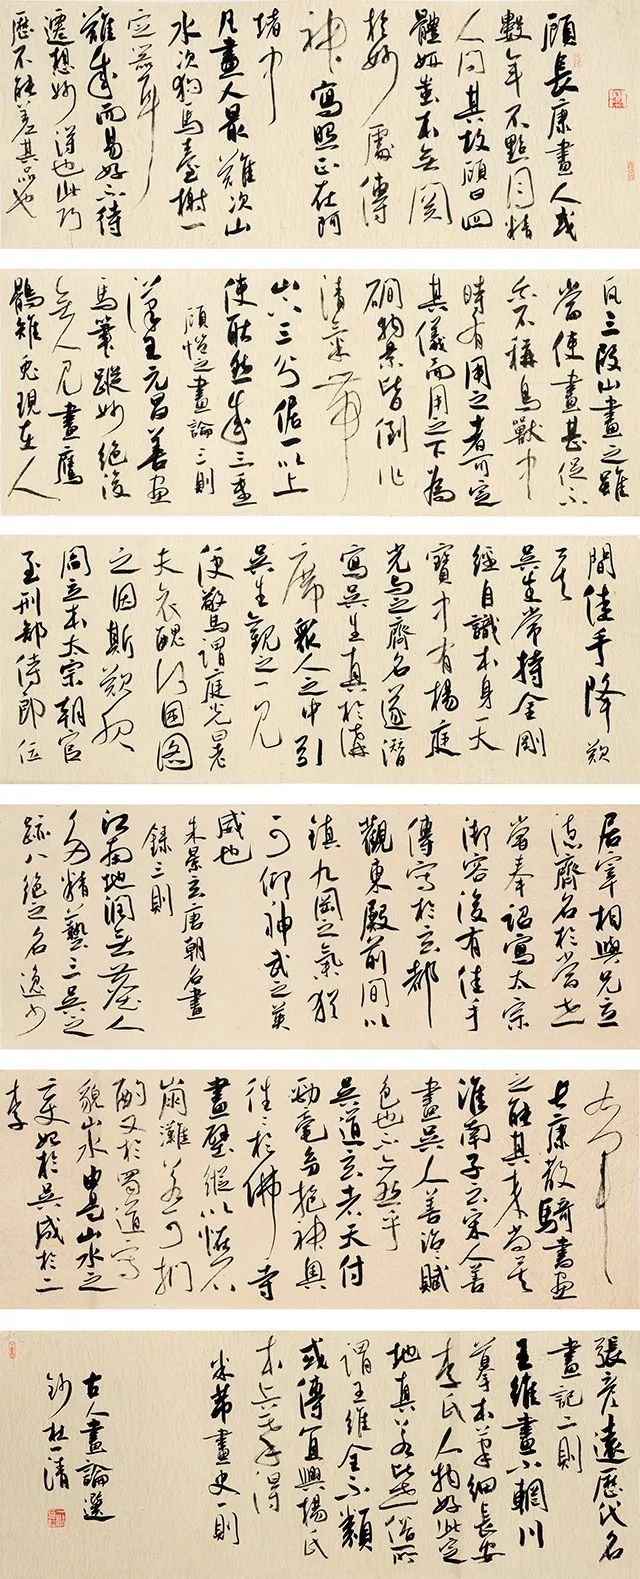 顧長康畫人或
數年不點目精
人問其故顧曰四
體妍蚩本無關
於妙處傳
神寫照正在阿
堵中
凡畫人最難次山
水次狗馬臺榭一
定器耳
難成而易好不待
遷想妙得也此巧
歷不能差其品也
凡三段山畫之雖
當使畫甚促不
不稱鳥獸中
時有用之者可定
其儀而用之下為
磵物景皆倒作
清氣帶
山下三分倨一以上
使耿然成二重
顧愷之畫論三則
漢王元昌善畫
馬筆蹤妙絕後
無人見畫鷹
鶻雉兔現在人
間佳手降歎
吳生常持金剛
經自識本身天
寶中有楊庭
光與之齊名遂潛
寫吳生真於講
席眾人之中引
吳生觀之一見
便驚謂庭光曰老
夫衰醜何用圖
之因斯歎服
閻立本太宗朝官
至刑部侍郎位
居宰相與兄立
德齊名於當世
嘗奉詔寫太宗
御容後有佳手
傳寫於玄都
觀東殿前間以
鎮九岡之氣猶
可仰神武之英
威也
朱景玄唐朝名畫
錄三則
江南地潤無塵人
多精藝三吳之
跡八絕之名逸少
右軍
長康散騎書畫
之能其來尚矣
淮南子云宋人善
畫吳人善治賦
色也不亦然乎
吳道玄者天付
勁毫幼抱神奧
往往於佛寺
畫壁縱以怪石
崩灘若可捫
酌又於蜀道寫
貌山水由是山水之
變始於吳成於二
李
張彥遠歷代名
畫記二則
王維畫小輞川
摹本筆細長安
李氏人物好此定
地真若比世俗所
謂王維全不類
或傳宜興楊氏
本上摹得
米芾畫史一則
古人畫論選
鈔杜一清